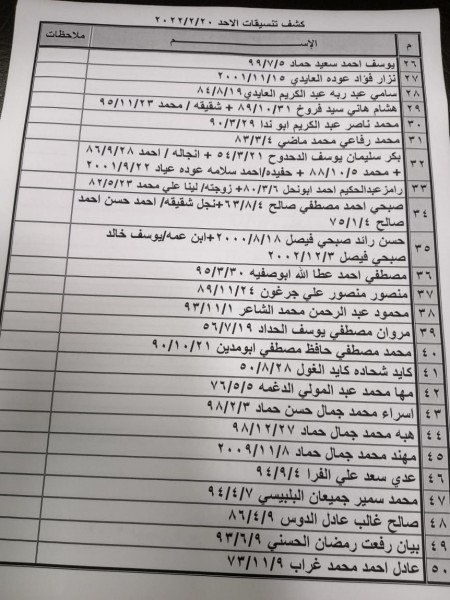 كشف تنسيقات الاحد ٢٠٢٢/٢/٢٠
م الإســـــم ملاحظات
٢٦ يوسف احمد سعيد حماد ٩٩/٧/٥
٢٧ نزار فؤاد عوده العايدي ٢٠٠١/١١/١٥
٢٨ سامي عبد ربه عبد الكريم العايدي ٨٤/٨/١٩
٢٩ هشام هاني سيد فروخ ٨٩/١٠/٣١ + شقيقه / محمد ٩٥/١١/٢٣
٣٠ محمد ناصر عبد الكريم ابو ندا ٩٠/٣/٢٩
٣١ محمد رفاعي محمد ماضي ٨٣/٣/٤
٣٢ بكر سليمان يوسف الدحدوح ٥٤/٣/٢١ + انجاله / احمد ٨٦/٩/٢٨
+ محمد ٨٨/١٠/٥ + حفيده/احمد سلامه عوده عياد ٢٠٠١/٩/٢٢
٣٣ رامزعبدالحكيم احمد ابونحل ٨٠/٣/٦+ زوجته/ لينا علي محمد ٨٢/٥/٢٣
٣٤ صبحي احمد مصطفي صالح ٦٣/٨/٤+نجل شقيقه/ احمد حسن احمد
صالح ٧٥/١/٤
٣٥ حسن رائد صبحي فيصل ٢٠٠٠/٨/١٨+ابن عمه/يوسف خالد
صبحي فيصل ٢٠٠٢/١٢/٣
٣٦ مصطفي احمد عطا الله ابوصفيه ٩٥/٣/٣٠
٣٧ منصور منصور علي جرغون ٨٩/١١/٢٤
٣٨ محمود عبد الرحمن محمد الشاعر ٩٣/١١/١
٣٩ مروان مصطفي يوسف الحداد ٥٦/٧/١٩
٤٠ محمد مصطفي حافظ مصطفي ابومدين ٩٠/١٠/٢١
٤١ كايد شحاده كايد الغول ٥٠/٨/٢٨
٤٢ مها محمد عبد المولي الدغمه ٧٦/٥/٥
٤٣ اسراء محمد جمال حسن حماد ٩٨/٢/٣
٤٤ هبه محمد جمال حماد ٩٨/١٢/٢٧
٤٥ مهند محمد جمال حماد ٢٠٠٩/١١/٨
٤٦ عدي سعد علي الفرا ٩٤/٩/٤
٤٧ محمد سمير جميعان البلبيسي ٩٤/٤/٧
٤٨ صالح غالب عادل الدوس ٨٦/٤/٩
٤٩ بيان رفعت رمضان الحسني ٩٣/٦/٩
٥٠ عادل احمد محمد غراب ٧٣/١١/٩